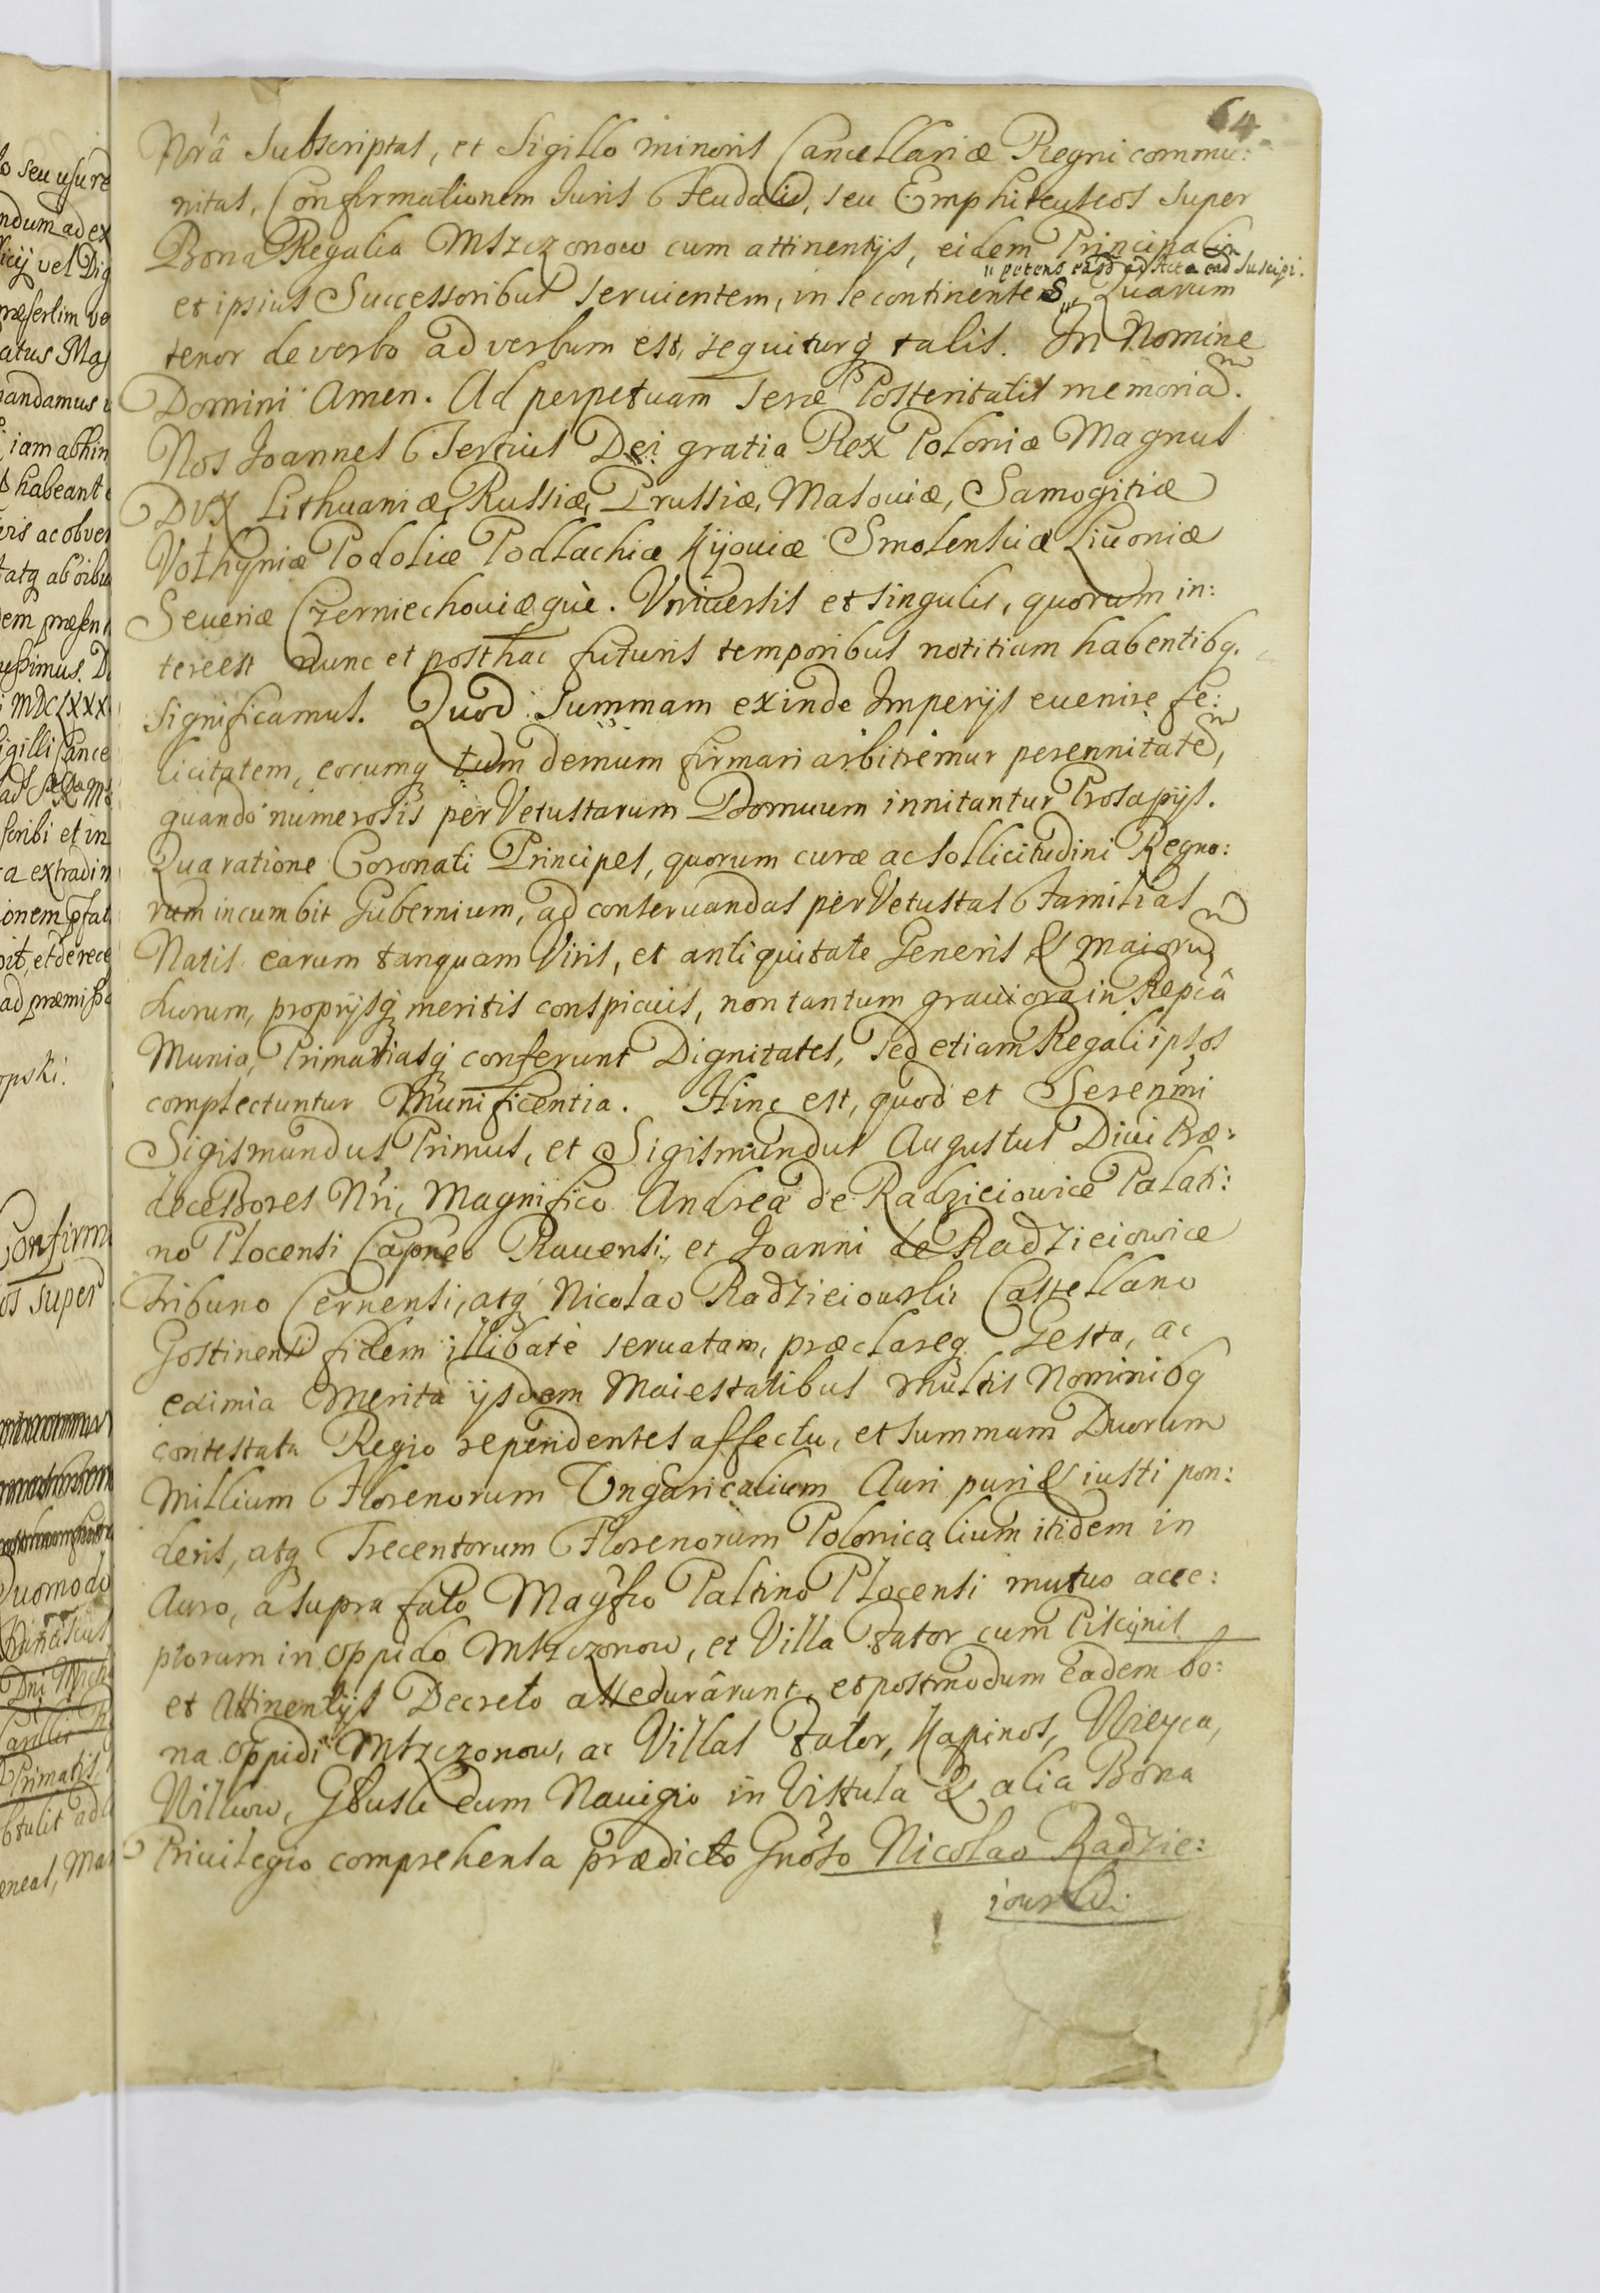 64
Nrâ Subscriptas, et Sigillo minoris Cancellariæ Regni commu:
nitas, Confirmationem Iuris Feudalis, seu Emphiteuseos super
Bona Regalia Mszczonow cum attinentijs, eidem Principali
petens easd ad Acta ead Suscipi.
et ipsius Successoribus seruientem, in se continentes, Quarum
tenor de verbo ad verbum est, sequiturq talis. In Nomine
Domini Amen. Ad perpetuam seræ Posteritatis memoriam.
Nos Joannes Tertius Dei gratia Rex Poloniæ Magnus
Dux Lithuaniæ, Russiæ, Prussiæ, Masouiæ, Samogitiæ
Volhyniæ Podoliæ Podlachiæ Kijouiæ Smolensciæ Liuoniæ
Seueriæ Czerniechouiæquè. Vniuersis et singulis, quorum in:
tereest nunc et posthac futuris temporibus notitiam habentibq.
significamus. Quod summam exinde Imperijs euenire fe:
licitatem, eorumq tum demum firmari arbitremur perennitatem,
quando numerosis per Vetustarum Domuum innitantur Prosapijs.
Qua ratione Coronati Principes, quorum curæ ac sollicitudini Regno:
rum incumbit Gubernium, ad conseruandas per Vetustas Familias
Natis earum tanquam Viris, et antiquitate Generis & maiorum
suorum, proprijsq meritis conspicuis, non tantum grauiora in Repcâ
Munia, Primatiasq conferunt Dignitates, sed etiam Regali ipsos
complectuntur Munificentia. Hinc est, quod et Serenmi
Sigismundus Primus, et Sigismundus Augustus Diui Præ:
decessores Nri, Magnifico Andreæ de Radzieiowice Palati:
no Plocensi Capneo Rauensi, et Joanni de Radzieiowice
Tribuno Cernensi, atq Nicolao Radzieiouski Castellano
Gostinensi fidem illibatè seruatam, præclareq Gesta, ac
eximia Merita ijsdem Maiestatibus multis Nominibq
contestata Regio rependentes affectu, et summam Duorum
Millium Florenorum Vngaricalium Auri puri & iusti pon:
deris, atq Trecentorum Florenorum Polonicalium itidem in
Auro, a supra fato Magfco Paltino Plocensi mutuo acce:
ptorum in oppido Mszczonow, et Villa Zator cum Piscinis
et Attinentijs Decreto assecurârunt, et postmodum Eadem bo:
na oppidi Mszczonow, ac Villas Zator, Kapinos, Wieyca,
Wilkow, Gbuski cum Nauigio in Vistula & alia Bona
Priuilegio comprehensa prædicto Gnoso Nicolao Radzie:
iouski.